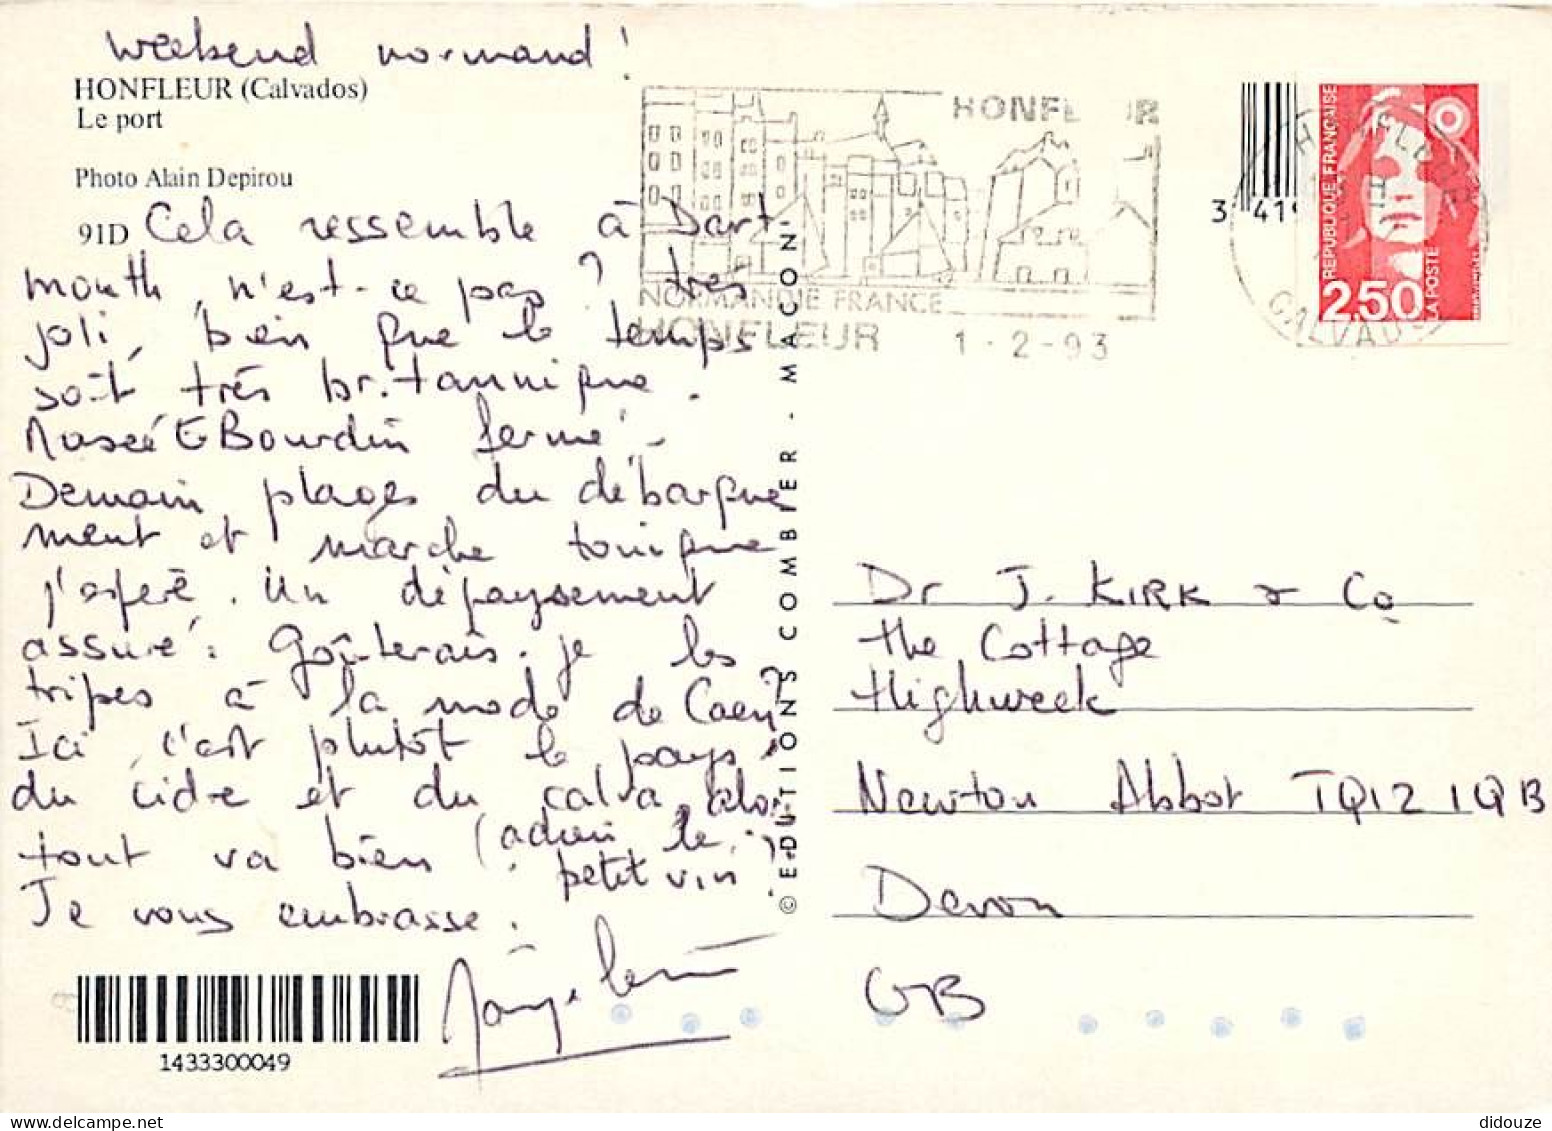 weekend normand !
HONFLEUR (Calvados)
Le port
Photo Alain Depirou
91D
Cela ressemble à Dart
mouth, n'est-ce pas ? très
joli, bien que le temps
soit très britannique.
Musée E Bourdin fermé.
Demain plages du débarque
ment et marche tonique
j'espère. Un dépaysement
assuré. Goûterais-je les
tripes à la mode de Caen ?
Ici, c'est plutôt le pays
du cidre et du calva, alors
tout va bien (adieu le
petit vin
Je vous embrasse.
1433300049
© EDITIONS COMBIER - MACON
HONFLEUR
NORMANDIE FRANCE
HONFLEUR 1-2-93
3 419
HONFLEUR
CALVADOS
REPUBLIQUE FRANÇAISE
2,50
LA POSTE
Dr J. KIRK & Co
The Cottage
Highweek
Newton Abbot TQ12 1QB
Devon
GB
didouze